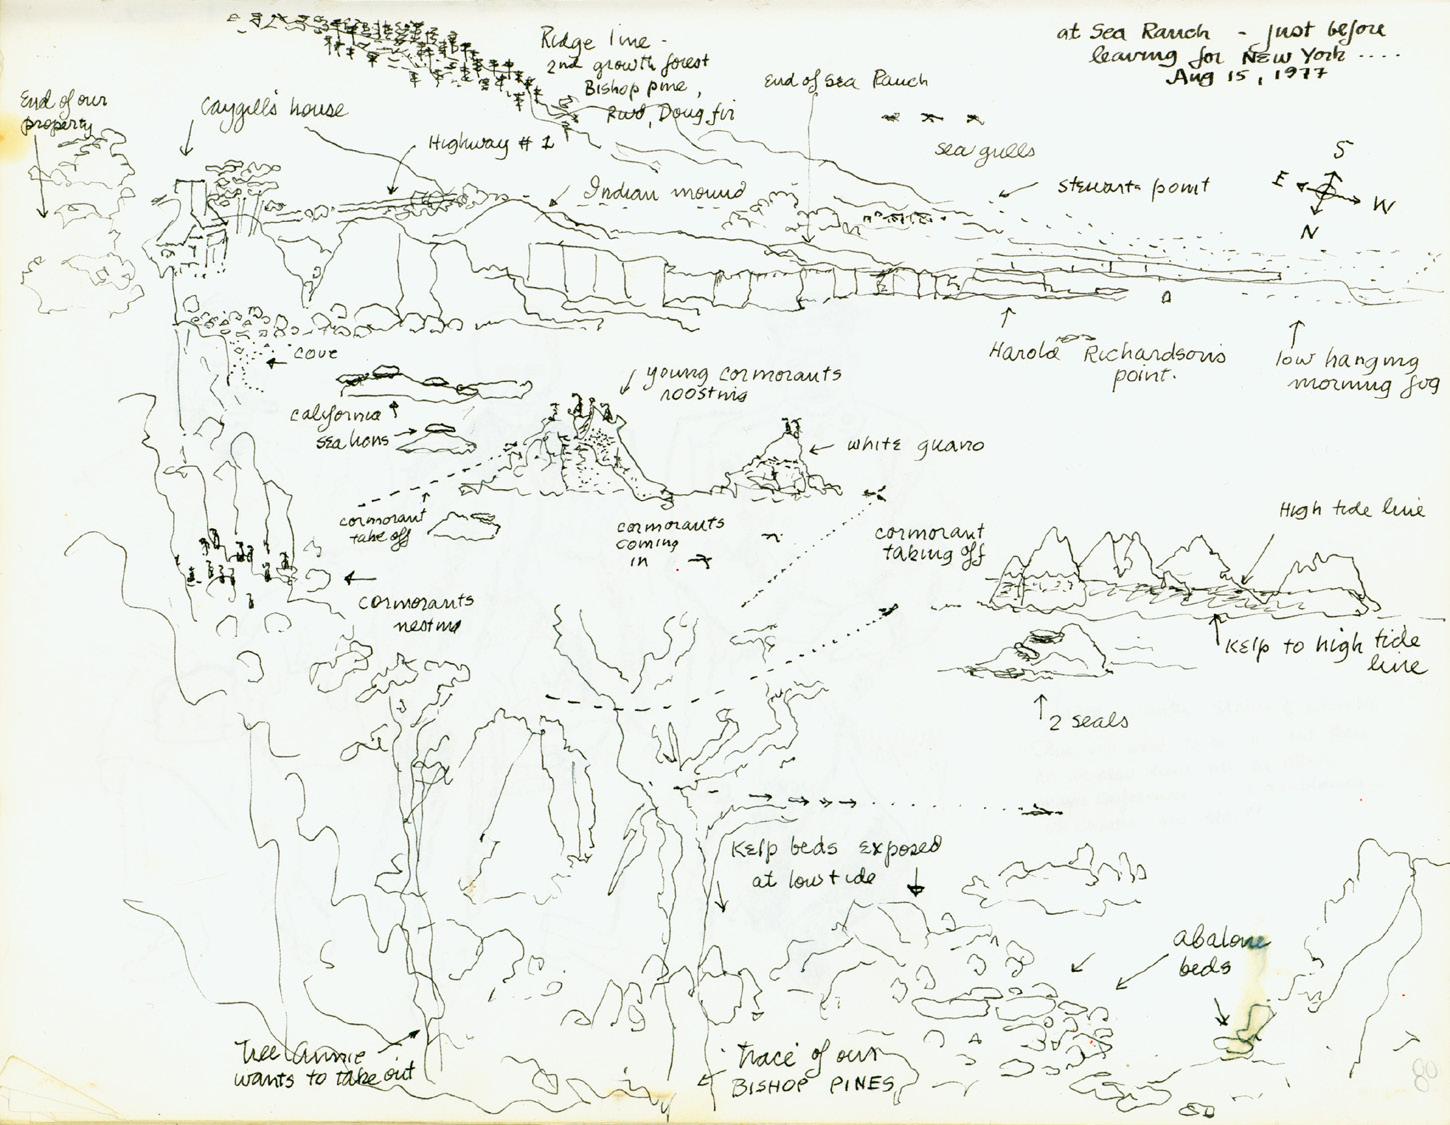 at Sea Ranch - just before
leaving for NEW York ....
Aug 15, 1977
Ridge line -
2nd growth forest
Bishop pine,
Rwd, Doug fir
End of Sea Ranch
End of our
property
Caygill's house
Highway # 1
sea gulls
Indian mound
Stewarts point
S
E
W
N
cove
Harold Richardson's
point.
low hanging
morning fog
young cormorants
roosting
California
sea lions
white guano
cormorant
take off
cormorants
coming
in
cormorant
taking off
High tide line
cormorants
nesting
Kelp to high tide
line
2 seals
Kelp beds exposed
at low tide
abalone
beds
Tree Annie
wants to take out
'trace' of our
BISHOP PINES
80